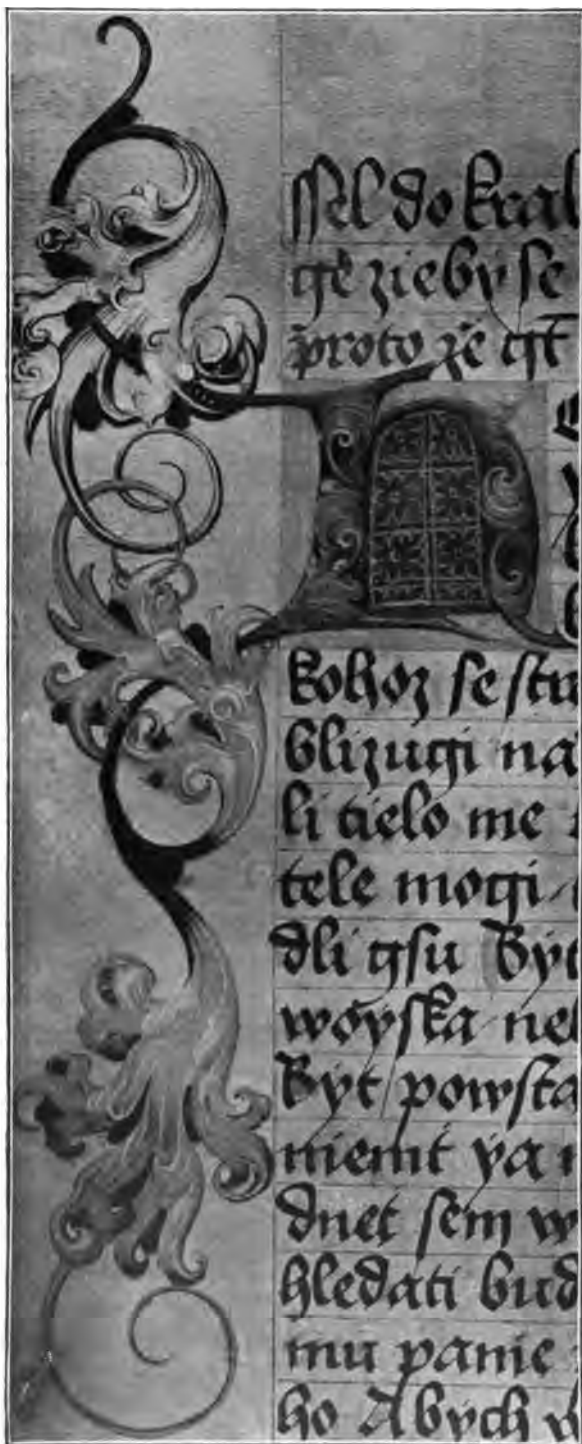 ſſel do kral
gė zieby ſe
proto že gṫ
kohoz ſe ſtra
blizugi na
li tielo me
tele mogi
dli gſu Byt
woyſka neb
Byt powſta
niemt ya
dnet ſem w
hledati bud
mu panie
ho Abych w